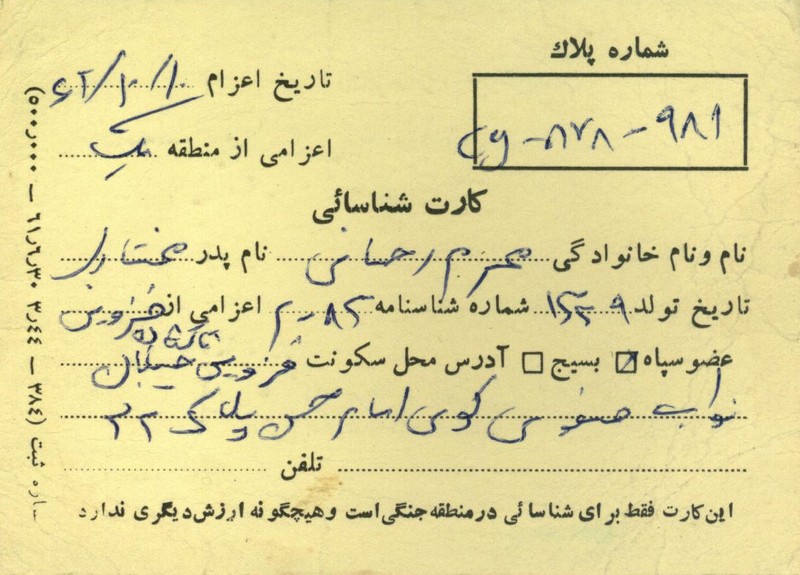 شماره پلاك
تاریخ اعزام ۶۲/۱۰/۱۰
۹۸۱ - ۸۷۸ -
اعزامی از منطقه یک
کارت شناسائی
نام ونام خانوادگی محرم رحمانی نام پدر مختار
تاریخ تولد ۱۳۳۹ شماره شناسنامه ۸۲ - م اعزامی از قزوین
تاکستان
عضو سپاه بسیج آدرس محل سکونت قزوین خیابان
نواب صفوی کوی امام حسن پلاک ۲۲
تلفن
این کارت فقط برای شناسائی در منطقه جنگی است و هیچگونه ارزش دیگری ندارد
ثبت (۳۸٤ – ۳ر٤٤ ۶۱ر۶ر۳۰ – ۵۰۰ر۰۰۰)